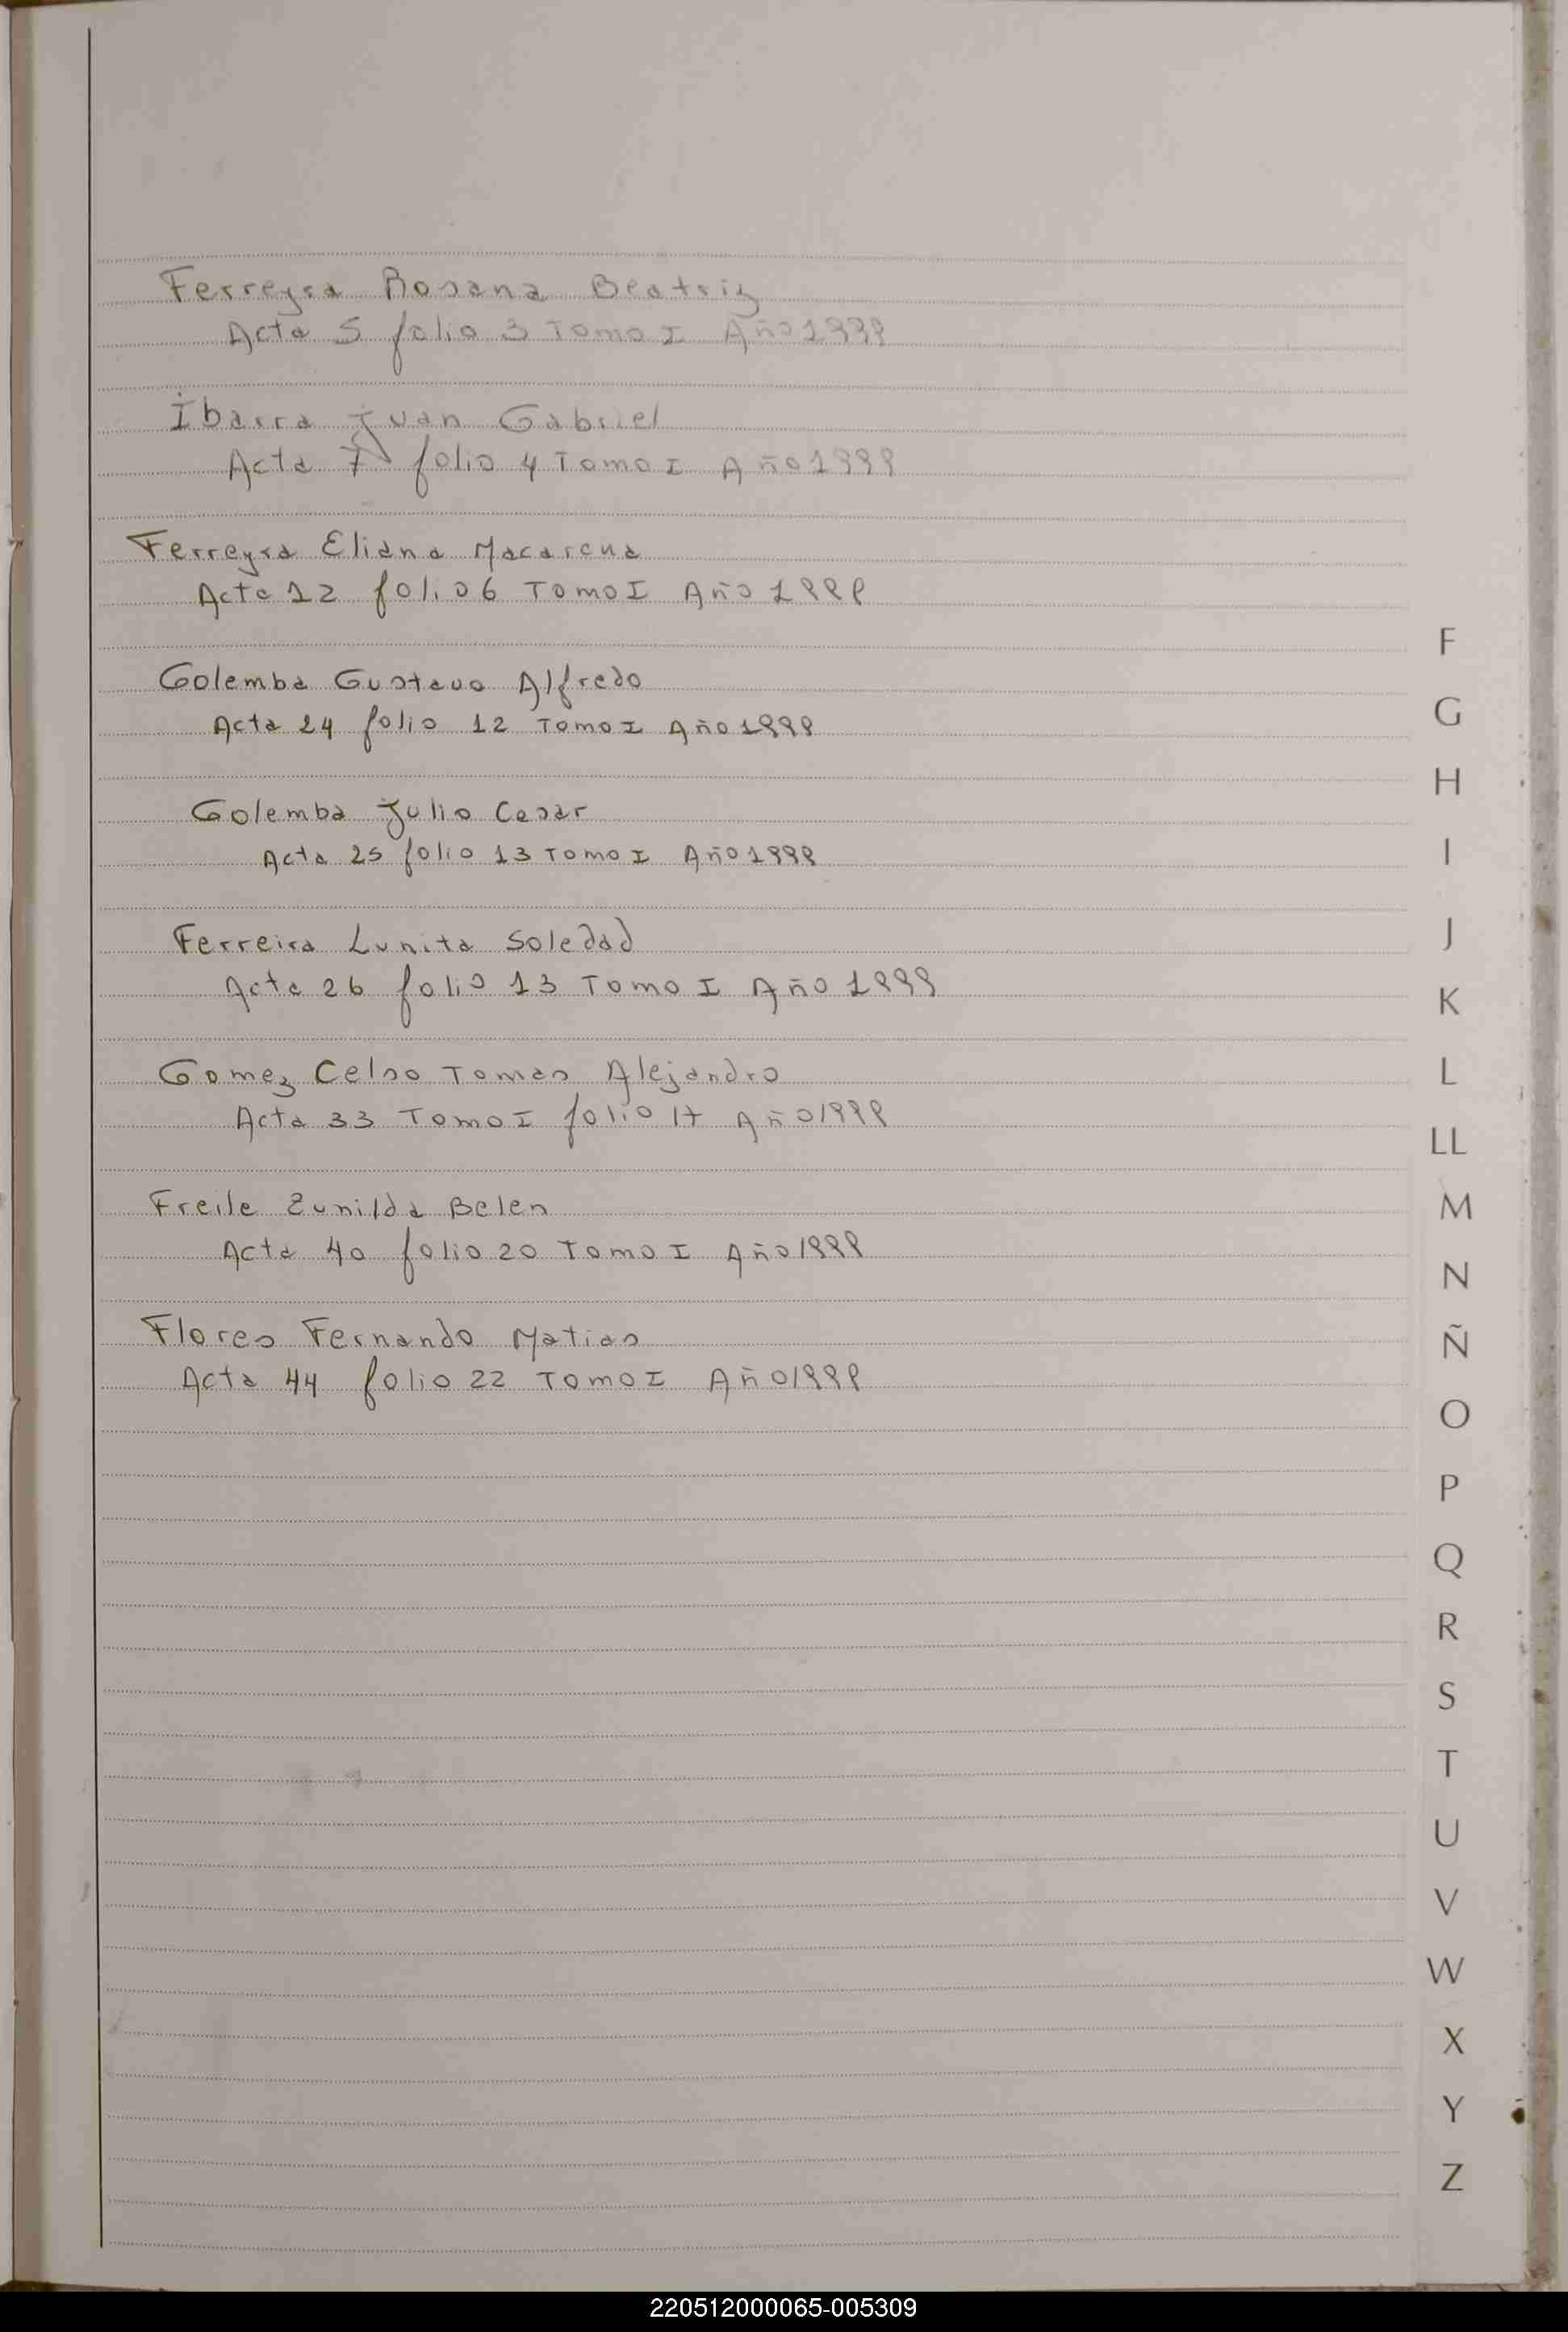 Ferreyra Rosana Beatriz
Acta 5 folio 3 Tomo I Año 1999
Ibarra Juan Gabriel
Acta 7 folio 4 Tomo I Año 1999
Ferreyra Eliana Macarena
Acta 12 folio 6 Tomo I Año 1999
F
Golemba Gustavo Alfredo
G
Acta 24 folio 12 Tomo I Año 1999
H
Golemba Julio Cesar
I
Acta 25 folio 13 Tomo I Año 1999
J
Ferreira Lunita Soledad
Acta 26 folio 13 Tomo I Año 1999
K
Gomez Celso Tomas Alejandro
L
Acta 33 Tomo I folio 17 Año 1999
LL
Freile Zunilda Belen
M
Acta 40 folio 20 Tomo I Año 1999
N
Flores Fernando Matias
Ñ
Acta 44 folio 22 Tomo I Año 1999
O
P
Q
R
S
T
U
V
W
X
Y
Z
220512000065-005309